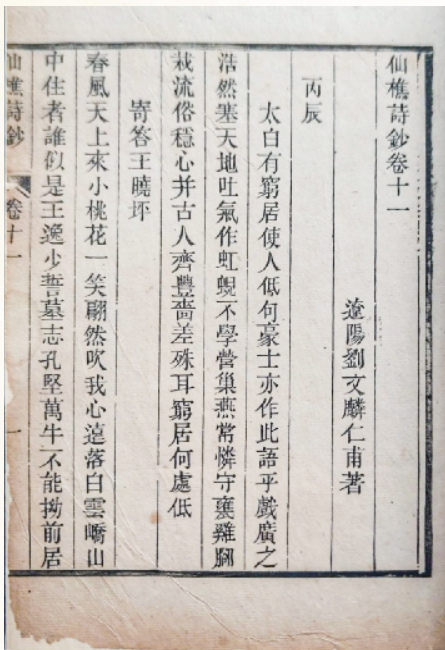 仙樵詩鈔卷十一
遼陽劉文麟仁甫著
丙辰
太白有窮居使人低句豪士亦作此語乎戲廣之
浩然塞天地吐氣作虹蜺不學營巢燕常憐守甕雞胸
裁流俗穩心并古人齊豐嗇差殊耳窮居何處低
寄答王曉坪
春風天上來小桃花一笑翩然吹我心遠落白雲嶠山
中住者誰似是王逸少誓墓志孔堅萬牛不能拗前居
仙樵詩鈔
卷十一
一